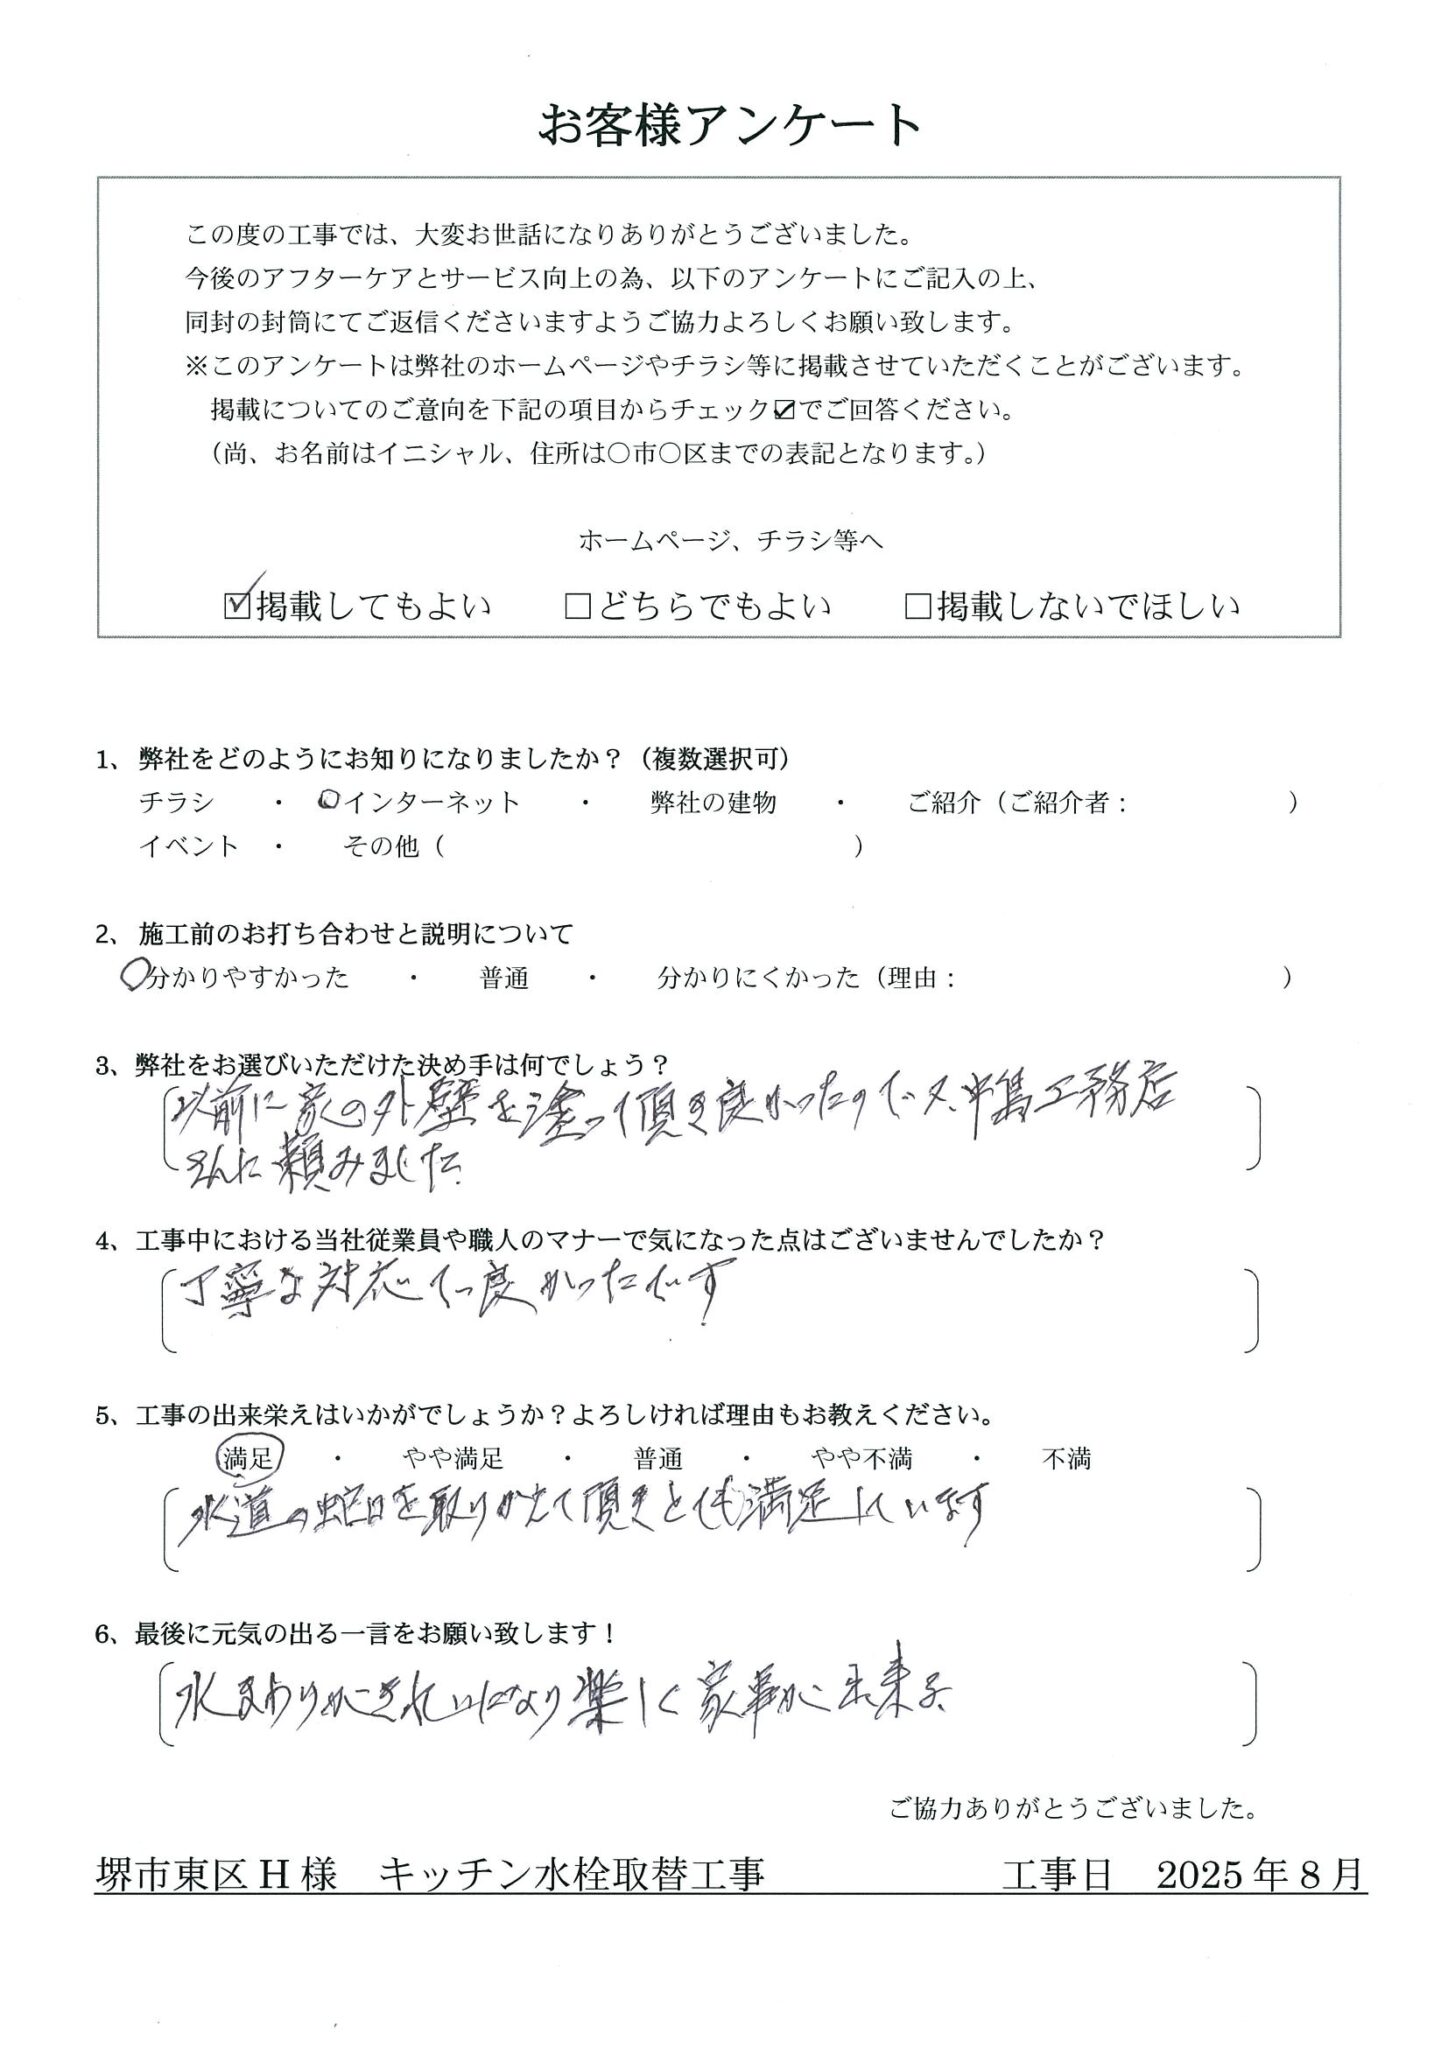 お客様アンケート
この度の工事では、大変お世話になりありがとうございました。
今後のアフターケアとサービス向上の為、以下のアンケートにご記入の上、
同封の封筒にてご返信くださいますようご協力よろしくお願い致します。
※このアンケートは弊社のホームページやチラシ等に掲載させていただくことがございます。
掲載についてのご意向を下記の項目からチェック☑でご回答ください。
（尚、お名前はイニシャル、住所は〇市〇区までの表記となります。）
ホームページ、チラシ等へ
☑掲載してもよい　□どちらでもよい　□掲載しないでほしい
1、弊社をどのようにお知りになりましたか？（複数選択可）
チラシ　・　○インターネット　・　弊社の建物　・　ご紹介（ご紹介者：　　　）
イベント　・　その他（　　　）
2、施工前のお打ち合わせと説明について
○分かりやすかった　・　普通　・　分かりにくかった（理由：　　　）
3、弊社をお選びいただけた決め手は何でしょう？
以前に家の外壁を塗って頂き良かったので又、中島工務店
さんに頼みました。
4、工事中における当社従業員や職人のマナーで気になった点はございませんでしたか？
丁寧な対応で良かったです
5、工事の出来栄えはいかがでしょうか？よろしければ理由もお教えください。
満足　・　やや満足　・　普通　・　やや不満　・　不満
水道の蛇口を取りかえて頂きとても満足しています
6、最後に元気の出る一言をお願い致します！
水まわりがきれいになり楽しく家事が出来る
ご協力ありがとうございました。
堺市東区 H 様　キッチン水栓取替工事　工事日　2025 年 8 月